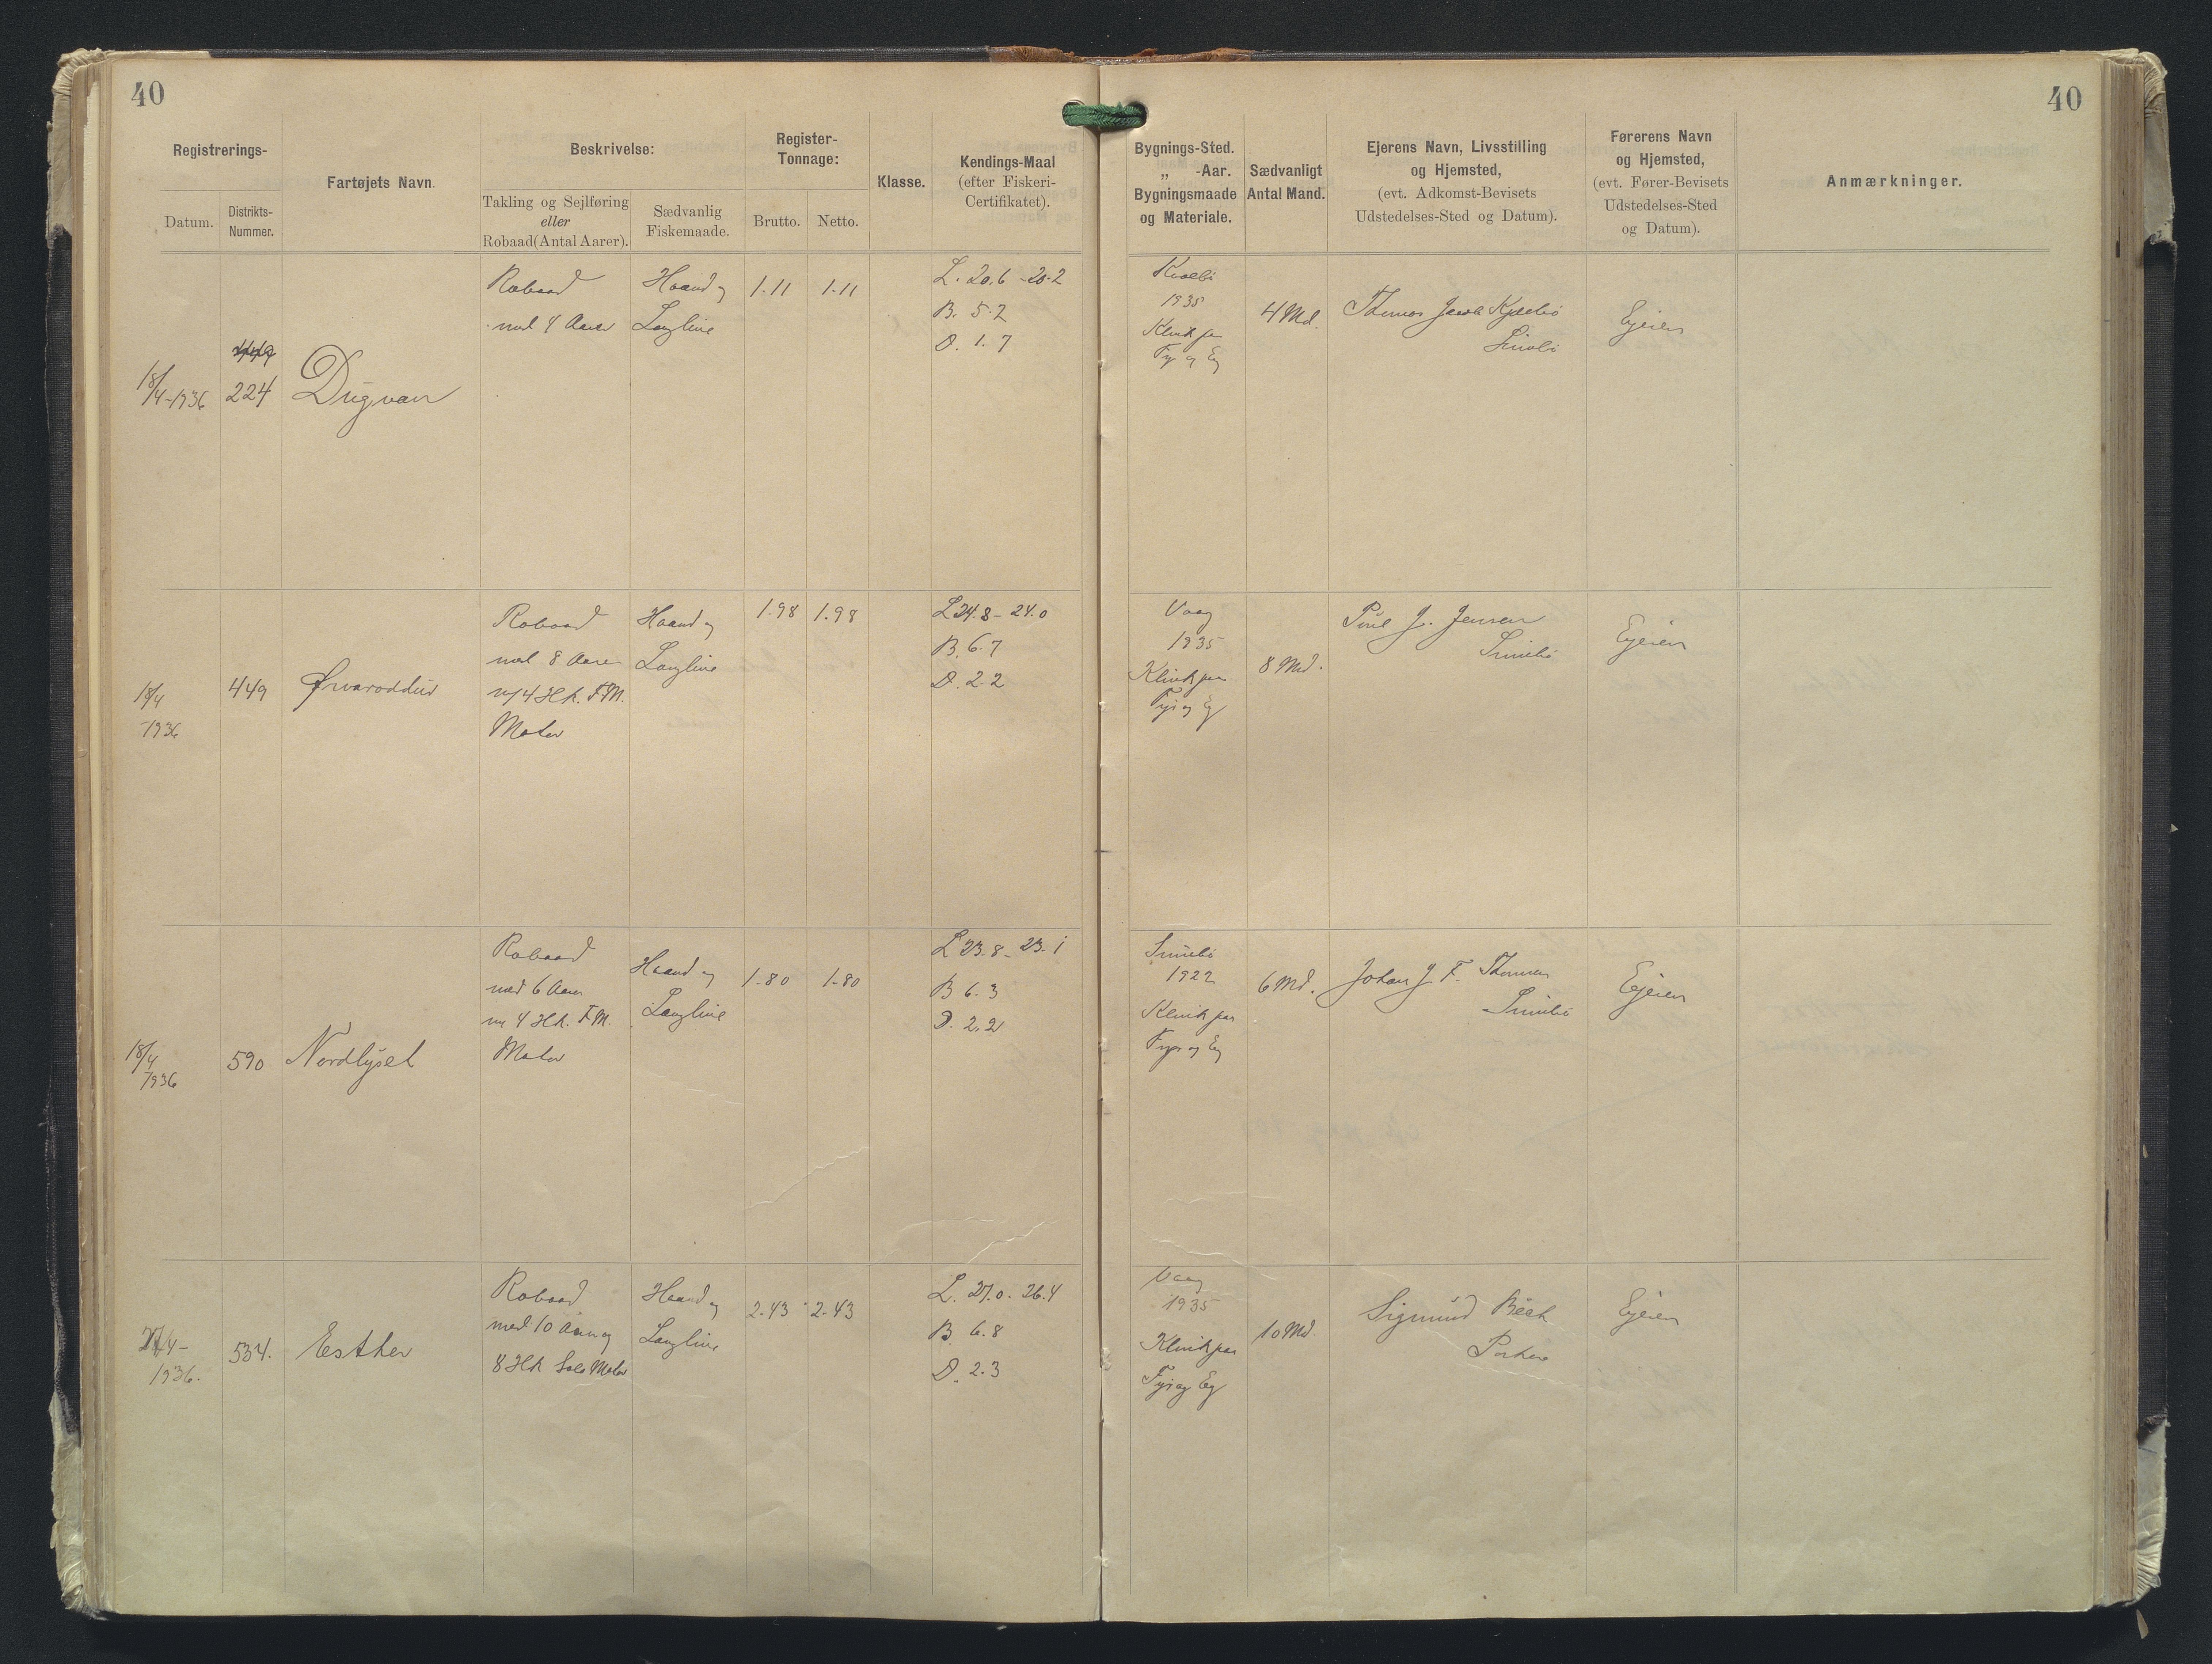 40
40
Registrerings-
Datum.
Distrikts-
Nummer.
Fartøjets Navn.
Beskrivelse:
Takling og Sejlføring
eller
Robaad (Antal Aarer).
Sædvanlig
Fiskemaade.
Register-
Tonnage:
Brutto.
Netto.
Klasse.
Kendings-Maal
(efter Fiskeri-
Certifikatet).
Bygnings-Sted.
„ -Aar.
Bygningsmaade
og Materiale.
Sædvanligt
Antal Mand.
Ejerens Navn, Livsstilling
og Hjemsted,
(evt. Adkomst-Bevisets
Udstedelses-Sted og Datum).
Førerens Navn
og Hjemsted,
(evt. Fører-Bevisets
Udstedelses-Sted
og Datum).
Anmærkninger.
18/4-1936
449
224
Dugvan
Robaad
med 4 Aarer
Haand og
Langline
1.11
1.11
L. 20.6 - 20.2
B. 5.2
D. 1.7
1935
Klink paa
Fyr og Eg
4 Md.
Thomas Jacob
Ejeren
18/4
-1936
449
Ørvaroddur
Robaad
med 8 Aarer
m/4 Hk. F.M.
Motor
Haand og
Langline
1.98
1.98
L 24.8 - 24.0
B. 6.7
D. 2.2
Vaag
1935
Klink paa
Fyr og Eg
8 Md.
Poul J. Jensen
Sumbø
Ejeren
18/4
1936
590
Nordlyset
Robaad
med 6 Aarer
m 4 Hk. F.M.
Motor
Haand og
Langline
1.80
1.80
L 23.8 - 23.1
B 6.3
D. 2.2
Sumbø
1922
Klink paa
Fyr og Eg
6 Md.
Johan J. F. Thomsen
Sumbø
Ejeren
27/4-
1936.
534.
Esther
Robaad
med 10 Aarer og
8 Hk Solo Motor
Haand og
Langline
2.43
2.43
L. 27.0. 26.4
B 6.8
D. 2.3
Vaag
1935
Klink paa
Fyr og Eg
10 Md.
Sigmund Bech
Porkere
Ejeren